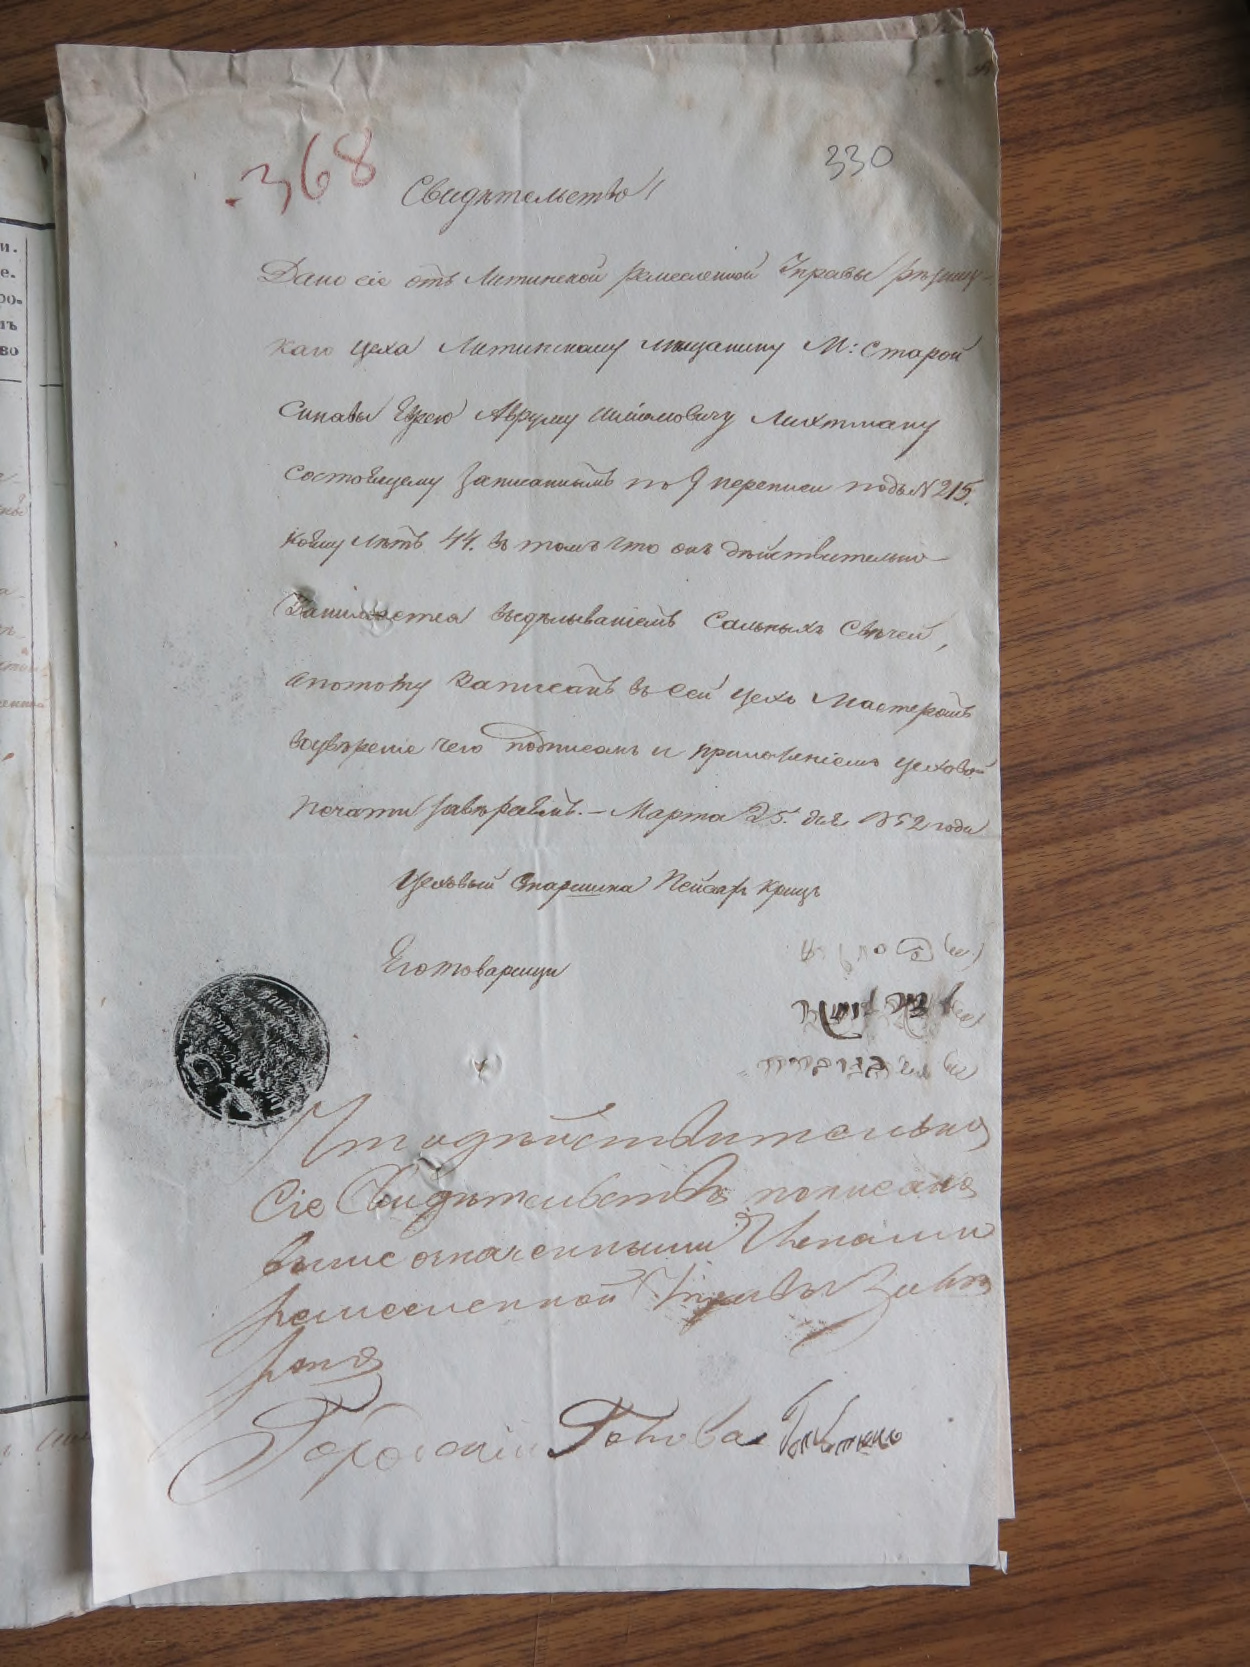 368
330
Свидѣтельство
Дано сіе отъ Литинской ремесленной Управы рѣзниц-
каго цеха Литинскому мѣщанину М: Старой
Синавы Еврею Авруму Лихтману
состоящему записаннымъ по 9 переписи подъ N 215.
коему лѣтъ 44. въ томъ что онъ дѣйствительно
занимается выдѣлываніемъ Сальныхъ Свѣчей,
апотому записанъ въ сей цехъ Мастеромъ
воувѣреніе чего подписомъ и приложеніемъ цеховой
печати завѣряемъ. – Марта 25. дня 1852 года
Цеховый Старшина
Его товарищи
Что дѣйствительно
Сіе Свидѣтельство пописано
выше означенными Членами
ремесленной Управы
Городскій Голова